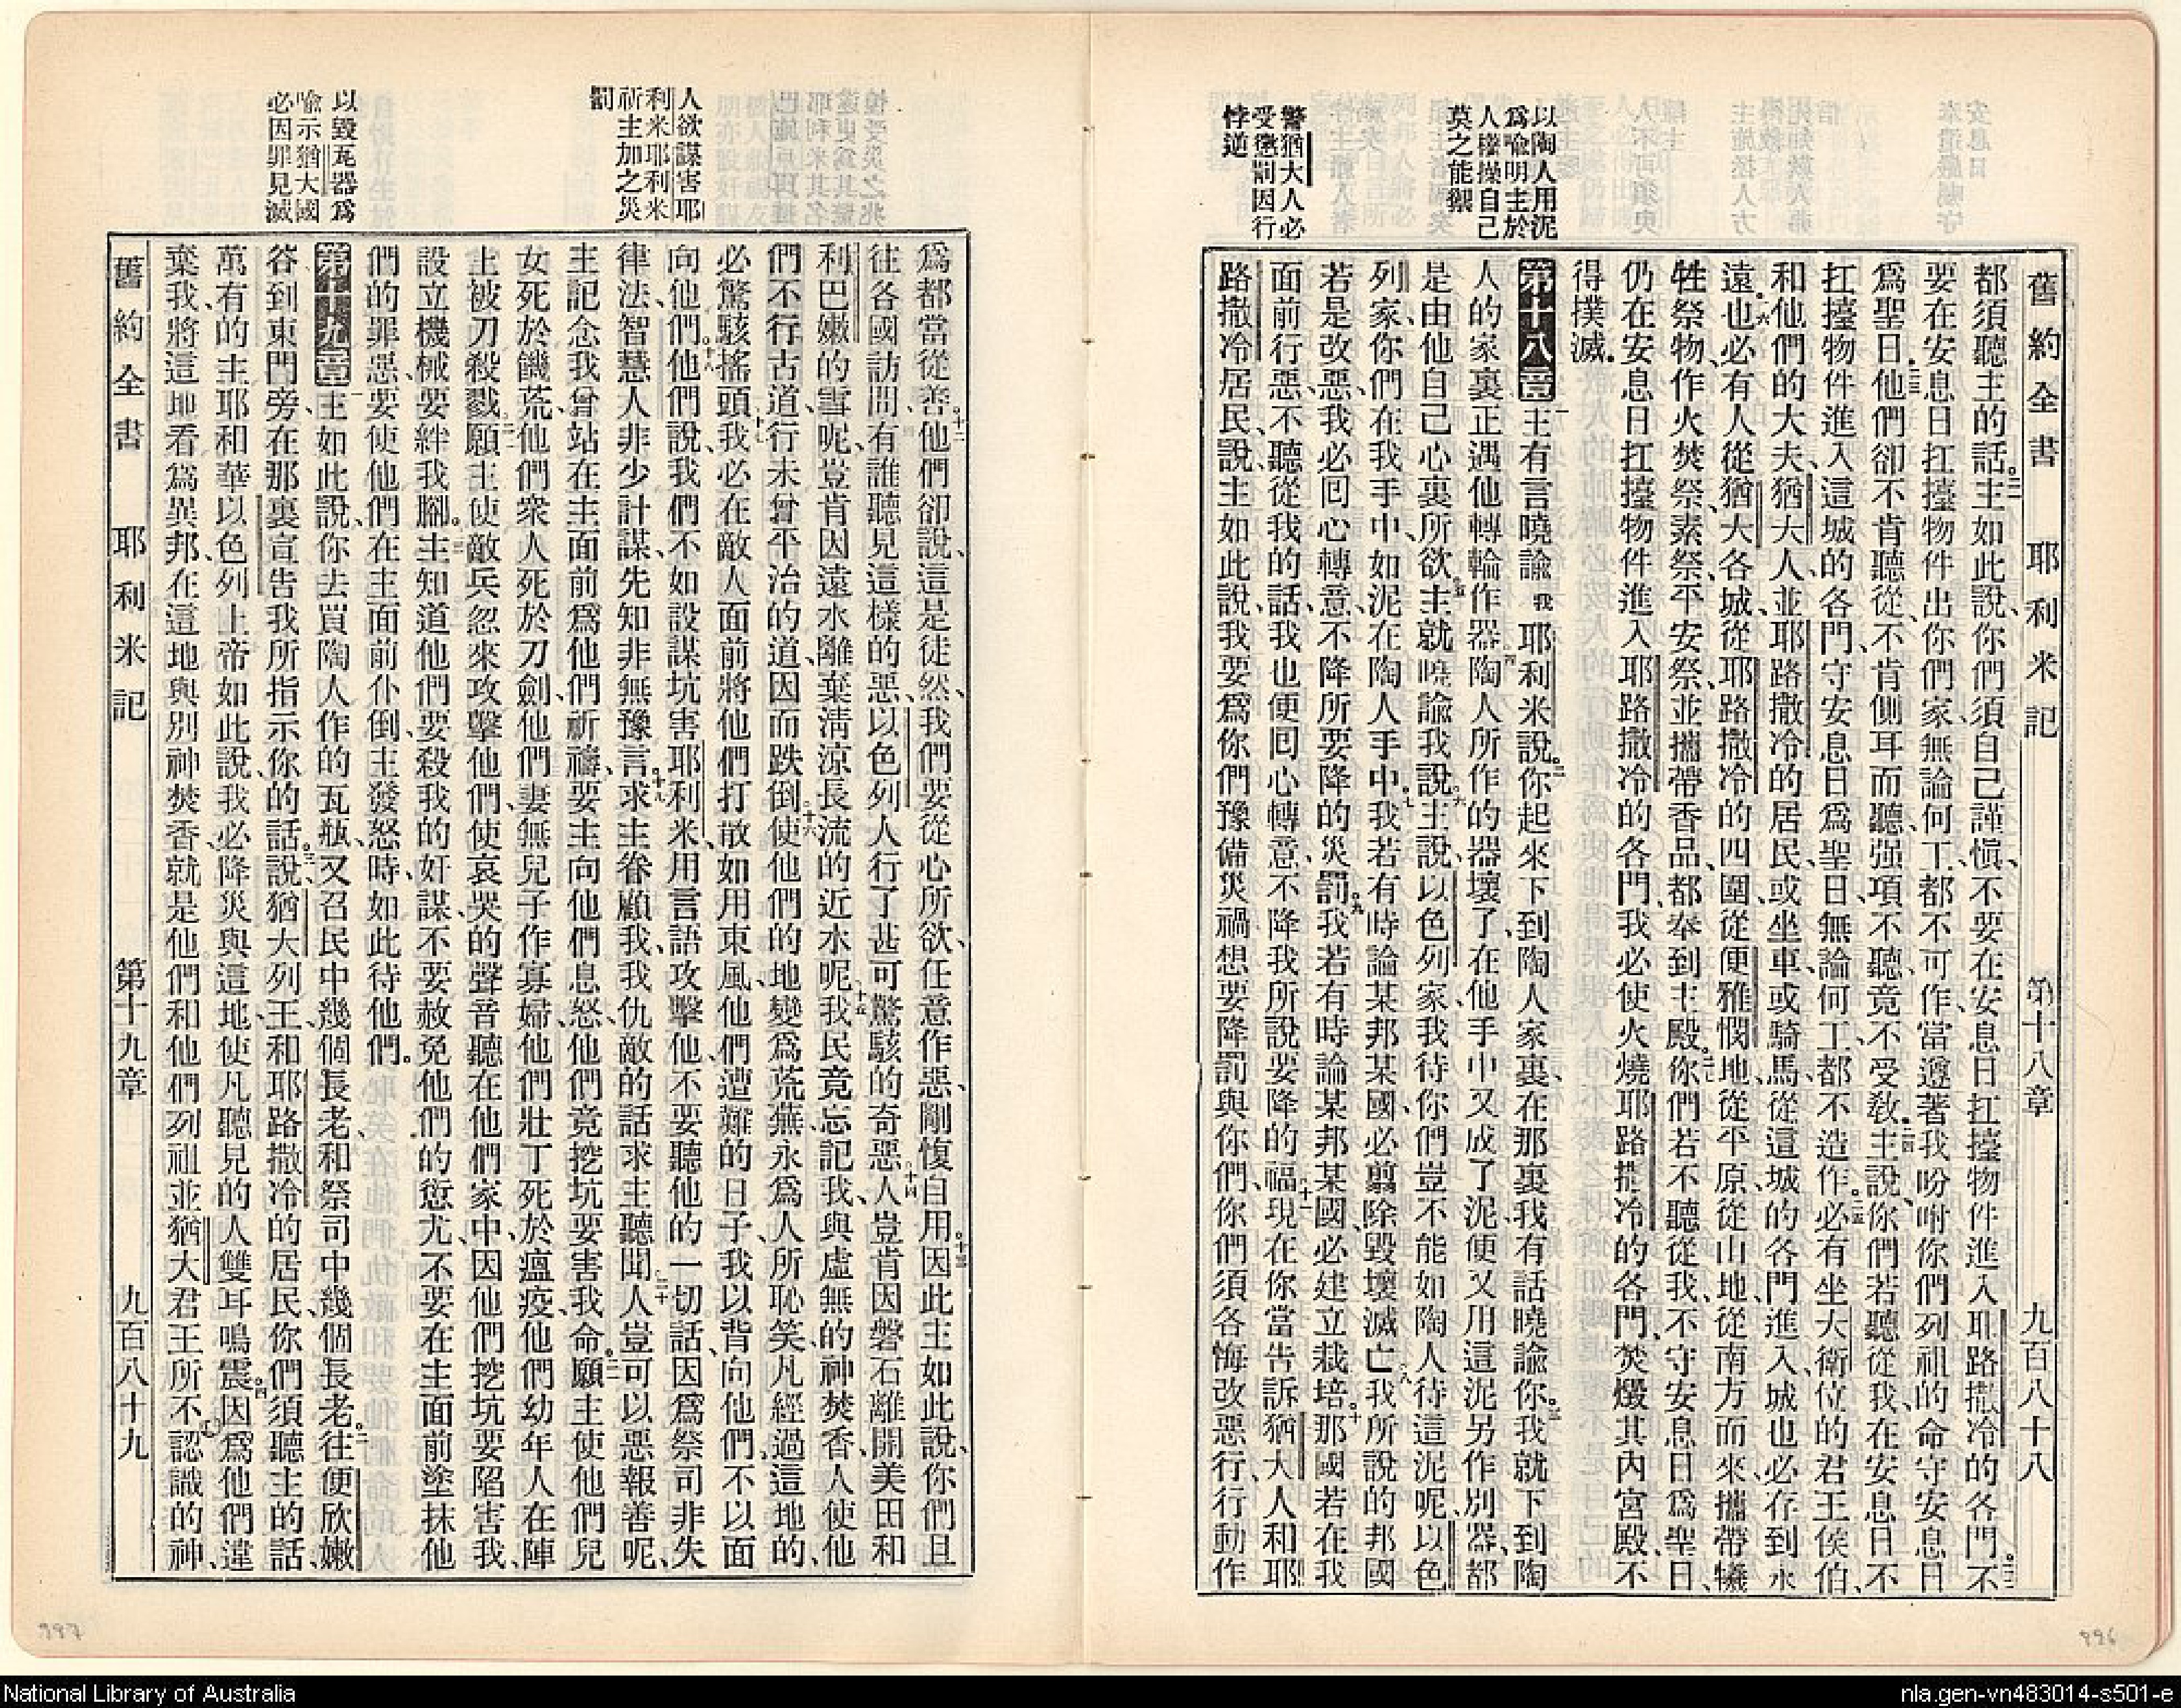 舊約全書 耶利米記 第十八章 九百八十八
都須聽主的話。二一主如此說、你們須自己謹愼、不要在安息日扛擡物件進入耶路撒冷的各門。二二不
要在安息日扛擡物件出你們家、無論何工、都不可作、當遵著我吩咐你們列祖的命守安息日
爲聖日。二三他們卻不肯聽從、不肯側耳而聽、强項不聽、竟不受敎。二四主說、你們若聽從我、在安息日不
扛擡物件進入這城的各門、守安息日爲聖日、無論何工、都不造作、二五必有坐大衛位的君王侯伯、
和他們的大夫、猶大人、並耶路撒冷的居民、或坐車、或騎馬、從這城的各門進入、城也必存到永
遠。二六也必有人從猶大各城、從耶路撒冷的四圍、從便雅憫地、從平原、從山地、從南方而來、攜帶犧
牲祭物、作火焚祭、素祭、平安祭、並攜帶香品、都奉到主殿。二七你們若不聽從我、不守安息日爲聖日、
仍在安息日扛擡物件進入耶路撒冷的各門、我必使火燒耶路撒冷的各門、焚燬其內宮殿、不
得撲滅。
以陶人用泥
爲喩明主於
人權操自己
莫之能禦
第十八章 一主有言曉諭我耶利米說。二你起來下到陶人家裏、在那裏我有話曉諭你。三我就下到陶
人的家裏、正遇他轉輪作器。四陶人所作的器壞了、在他手中又成了泥、便又用這泥另作別器、都
是由他自己心裏所欲。五主就曉諭我說。六主說、以色列家、我待你們、豈不能如陶人待這泥呢、以色
列家、你們在我手中、如泥在陶人手中。七我若有時論某邦某國、必翦除毀壞滅亡、八我所說的邦國
若是改惡、我必回心轉意、不降所要降的災罰。九我若有時論某邦某國、必建立栽培、十那國若在我
面前行惡、不聽從我的話、我也便回心轉意、不降我所說要降的福。十一現在你當告訴猶大人和耶
警猶大人必
受懲罰因行
悖逆
路撒冷居民、說、主如此說、我要爲你們豫備災禍、想要降罰與你們、你們須各悔改惡行、行動作
爲都當從善。十二他們卻說、這是徒然、我們要從心所欲、任意作惡、剛愎自用。十三因此主如此說、你們且
往各國訪問、有誰聽見這樣的惡、以色列人行了甚可驚駭的奇惡。十四人豈肯因磐石離開美田和
利巴嫩的雪呢、豈肯因遠水離棄淸涼長流的近水呢。十五我民竟忘記我、與虛無的神焚香、人使他
們不行古道、行未曾平治的道、因而跌倒、十六使他們的地變爲荒蕪、永爲人所恥笑、凡經過這地的、
必驚駭搖頭。十七我必在敵人面前將他們打散、如用東風、他們遭難的日子、我以背向他們、不以面
向他們。十八他們說、我們不如設謀坑害耶利米、用言語攻擊他、不要聽他的一切話、因爲祭司非失
人欲謀害耶
利米耶利米
祈主加之災
罰
律法、智慧人非少計謀、先知非無豫言。十九求主眷顧我、我仇敵的話、求主聽聞。二十人豈可以惡報善呢、
主記念我曾站在主面前、爲他們祈禱、要主向他們息怒、他們竟挖坑要害我命。二一願主使他們兒
女死於饑荒、他們衆人死於刀劍、他們妻無兒子作寡婦、他們壯丁死於瘟疫、他們幼年人在陣
上被刀殺戮。二二願主使敵兵忽來攻擊他們、使哀哭的聲音聽在他們家中、因他們挖坑要陷害我、
設立機械要絆我脚。二三主知道他們要殺我的奸謀、不要赦免他們的愆尤、不要在主面前塗抹他
們的罪惡、要使他們在主面前仆倒、主發怒時、如此待他們。
以毀瓦器爲
喩示猶大國
必因罪見滅
第十九章 一主如此說、你去買陶人作的瓦瓶、又召民中幾個長老、和祭司中幾個長老。二往便欣嫩
谷、到東門旁、在那裏宣告我所指示你的話。三說、猶大列王、和耶路撒冷的居民、你們須聽主的話、
萬有的主耶和華以色列上帝如此說、我必降災與這地、使凡聽見的人雙耳鳴震。四因爲他們違
棄我、將這地看爲異邦、在這地與別神焚香、就是他們和他們列祖並猶大君王所不認識的神、
舊約全書 耶利米記 第十九章 九百八十九
997
996
National Library of Australia
nla.gen-vn483014-s501-e